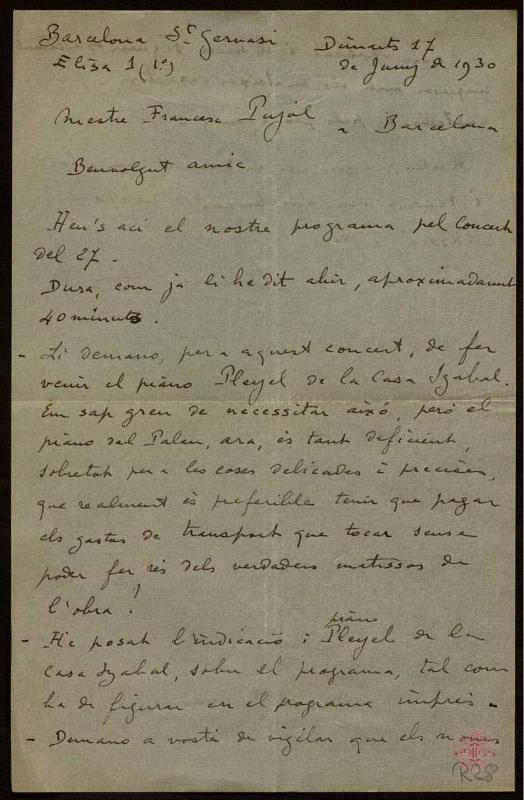 Barcelona St Gervasi
Elisa 1 (1º)
Dimarts 17
de Juny de 1930
Mestre Francesc Pujol
a Barcelona
Benvolgut amic
Heu's ací el nostre programa pel Concert
del 27.
Dura, com ja li he dit ahir, aproximadament
40 minuts.
- Li demano, per a aquest concert, de fer
venir el piano Pleyel de la Casa Izabal.
Em sap greu de necessitar aixó, peró el
piano del Palau, ara, és tant deficient,
sobretot per a les coses delicades i precises,
que realment és preferible tenir que pagar
els gastos de transport que tocar sense
poder fer rés dels verdaders matissos de
l'obra!
- He posat l'indicació i piano Pleyel de la
Casa Izabal, sobre el programa, tal com
ha de figurar en el programa imprés.
- Demano a vosté de vigilar que els noms
R28